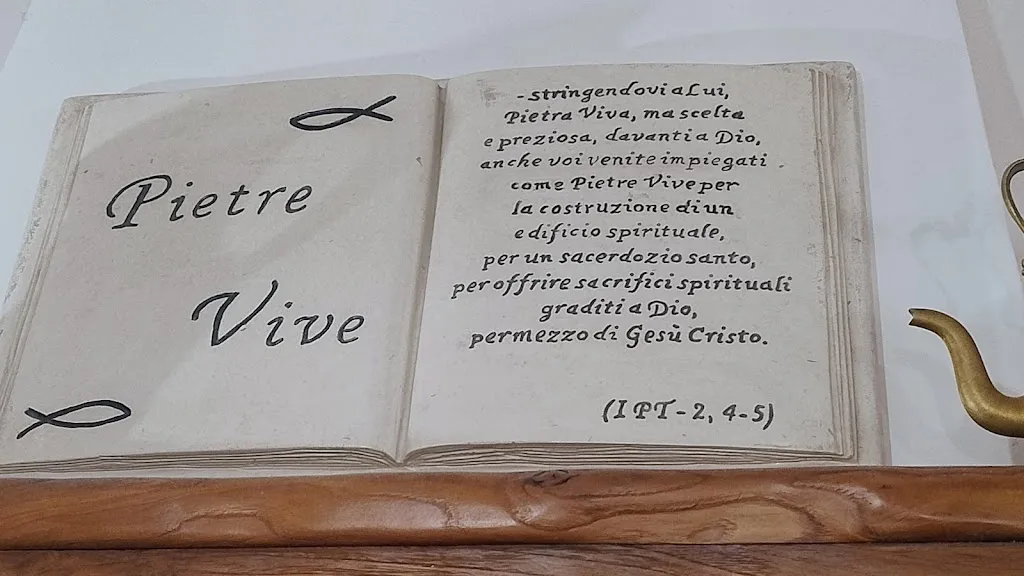 Pietre
Vive
-stringendovi a Lui,
Pietra Viva, ma scelta
e preziosa, davanti a Dio,
anche voi venite impiegati
come Pietre Vive per
la costruzione di un
edificio spirituale,
per un sacerdozio santo,
per offrire sacrifici spirituali
graditi a Dio,
per mezzo di Gesù Cristo.
(I PT-2, 4-5)